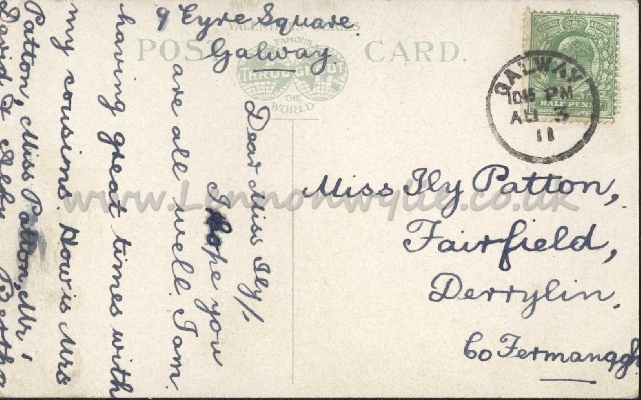 9 Eyre Square
Galway
VALENTINE'S SERIES
POST CARD.
FAMOUS
THROUGHOUT
THE
WORLD
Dear Miss Ily/,
I hope you
are all well. I am
having great times with
my cousins. How is Mrs
Patton, Miss Patton, Mr,
David &
Bertha
GALWAY
10 15 PM
AU 3
11
HALFPENNY
Miss Ily Patton,
Fairfield,
Derrylin,
Co Fermanagh
www.Lennonwylie.co.uk